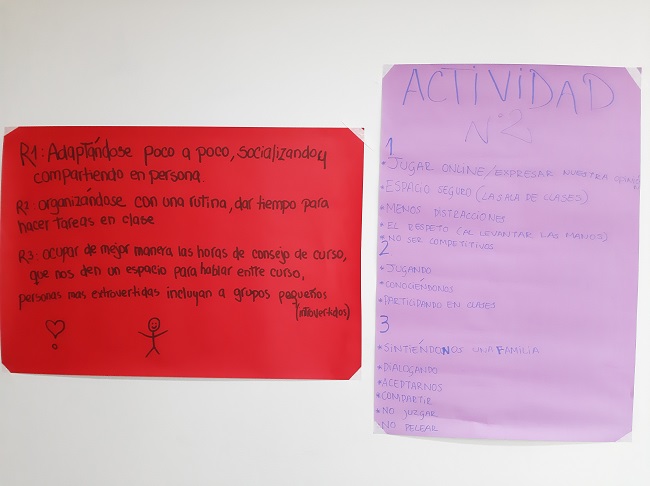 R1: Adaptándose poco a poco, socializando y
compartiendo en persona.
R2: organizándose con una rutina, dar tiempo para
hacer tareas en clase
R3: ocupar de mejor manera las horas de consejo de curso,
que nos den un espacio para hablar entre curso,
personas mas extrovertidas incluyan a grupos pequeños
(introvertidos)
ACTIVIDAD
N°2
1
* JUGAR ONLINE/EXPRESAR NUESTRA OPINIÓN
* ESPACIO SEGURO (LA SALA DE CLASES)
* MENOS DISTRACCIONES
* EL RESPETO (AL LEVANTAR LAS MANOS)
* NO SER COMPETITIVOS
2
* JUGANDO
* CONOCIÉNDONOS
* PARTICIPANDO EN CLASES
3
* SINTIÉNDONOS UNA FAMILIA
* DIALOGANDO
* ACEPTARNOS
* COMPARTIR
* NO JUZGAR
NO PELEAR